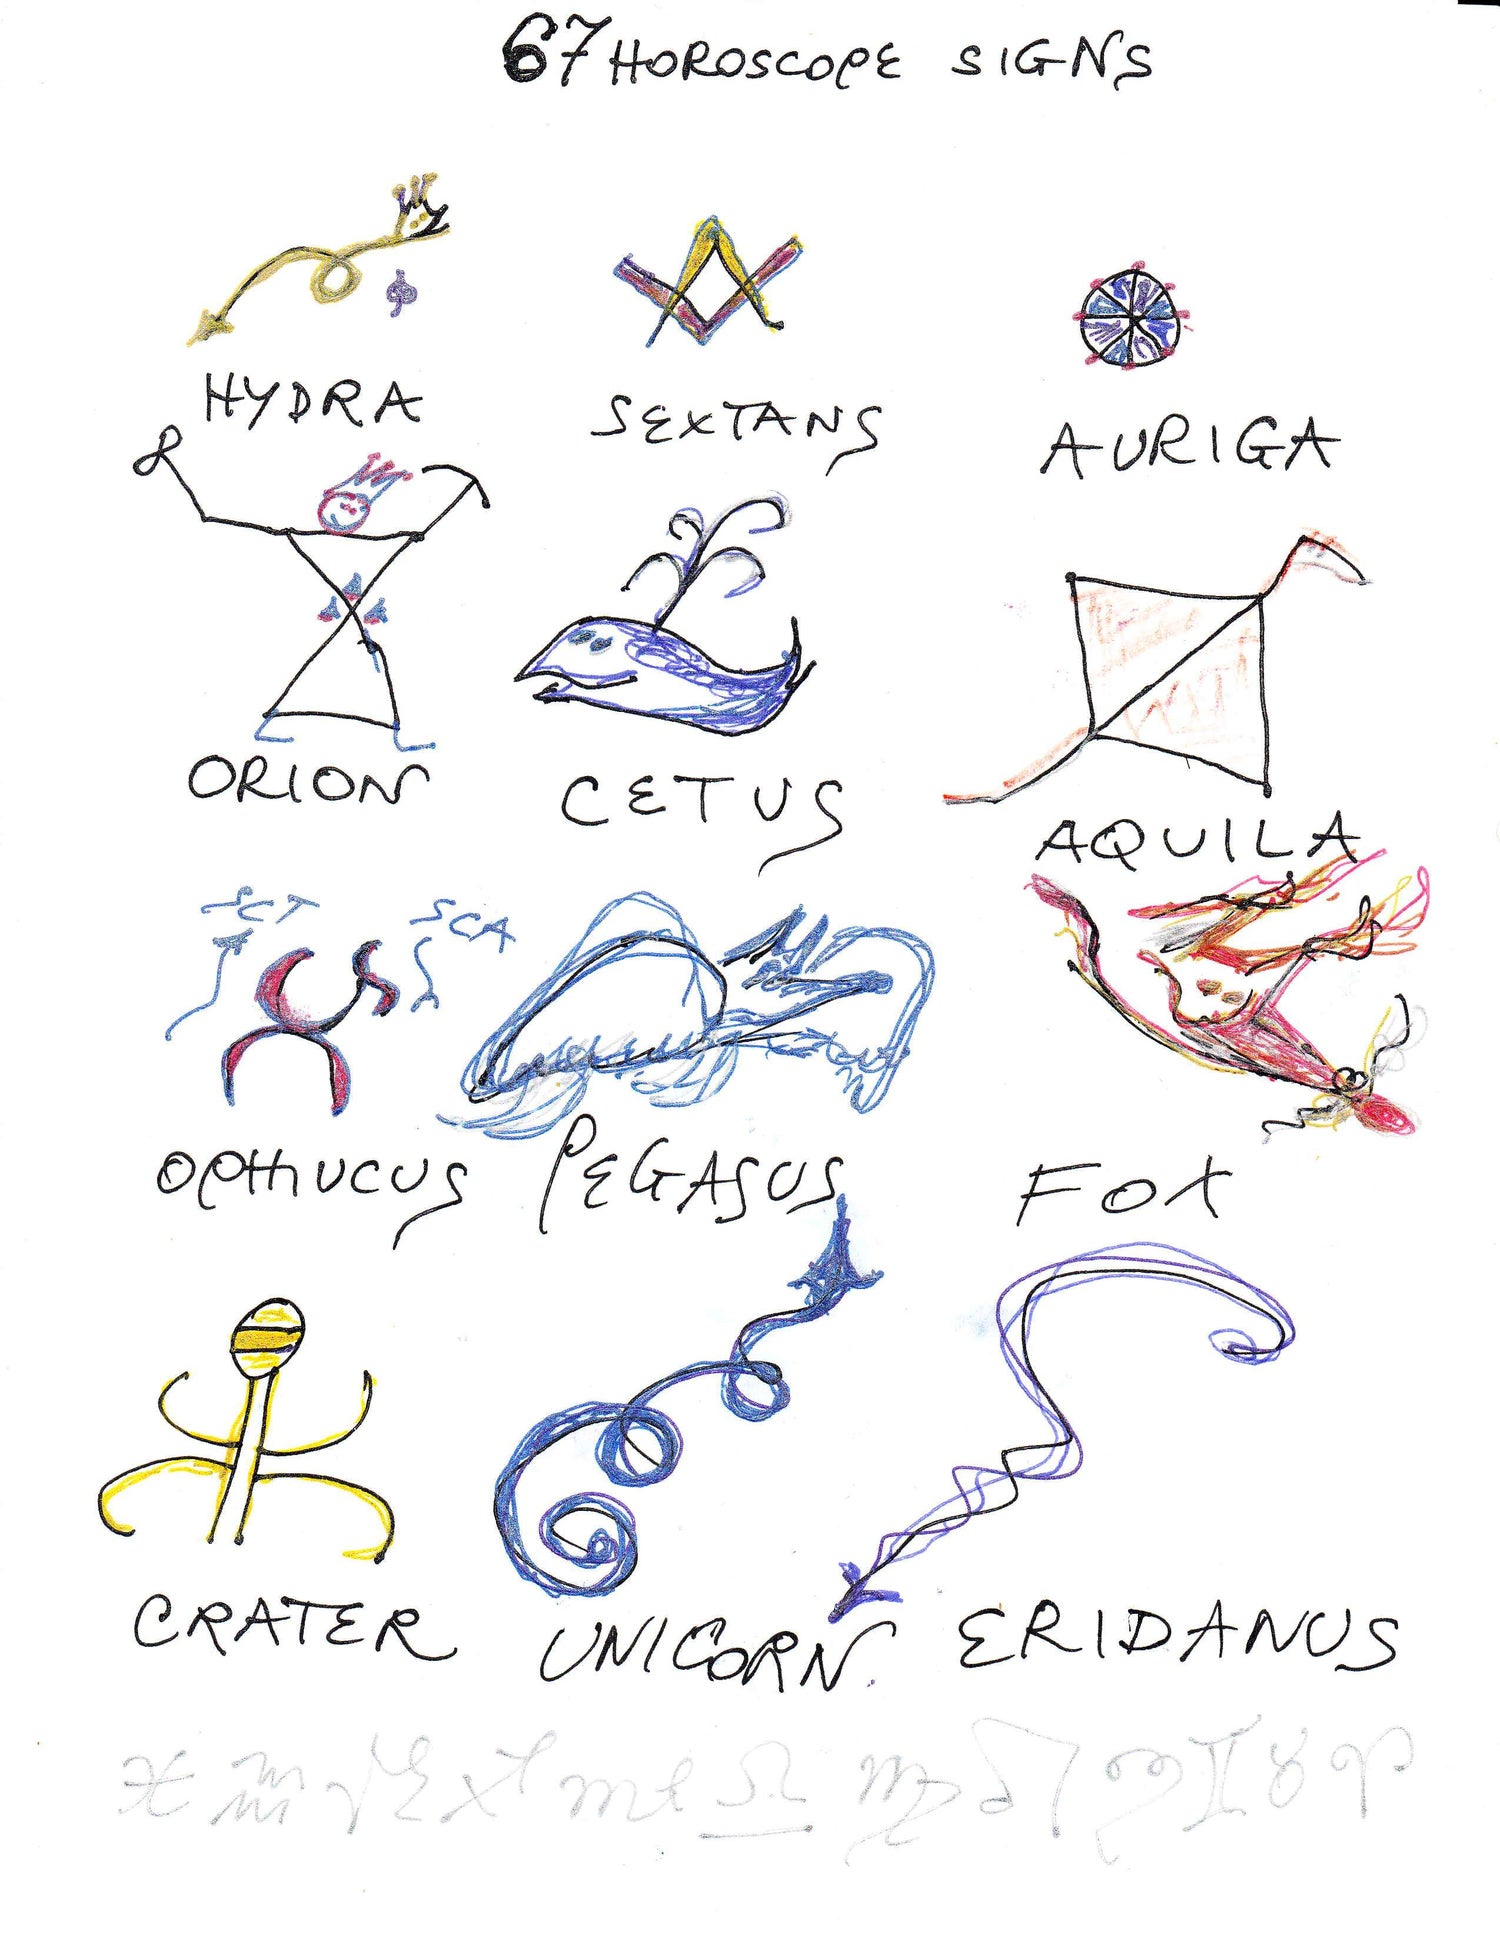 67 HOROSCOPE SIGNS
HYDRA SEXTANS AURIGA
ORION CETUS AQUILA
SCT SCA
OPHIUCUS PEGASUS FOX
CRATER UNICORN ERIDANUS
♓ ♒ ♑ ♐ ♏ ♎ ♍ ♌ ♋ ♊ ♉ ♈